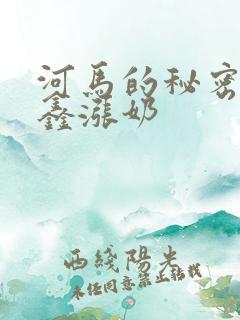 河馬的秘密
鑫漲奶
西綫陽光
未经同意禁止转载